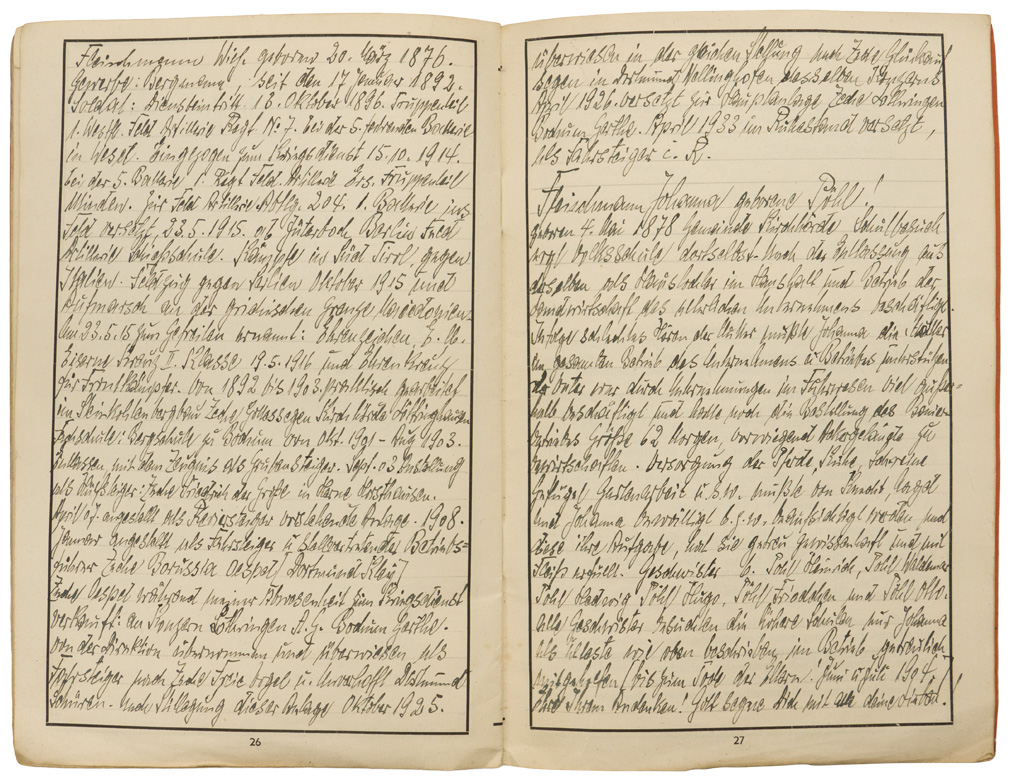 Fleischmann Wilh. geboren 20. März 1876.
Gewerbe: Bergmann, seit den 17 Januar 1892.
Soldat: Diensteintritt 16. Oktober 1896. Truppenteil
1. Westf. Feld Artillerie Regt No 7. bei der 5. fahrenden Batterie
in Wesel. Eingezogen zum Kriegsdienst 15.10. 1914.
bei der 5. Batterie 1. Regt Feld. Artillerie Ers. Truppenteil
Minden. Zur Feld Artillerie Abtlg. 204. 1. Batterie ins
Feld versetzt, 23.5.1915. ab Jüterboch Berlin Feld
Artillerie Schießschule. Kämpfe in Süd Tirol, gegen
Italien. Feldzug gegen Serbien Oktober 1915 und
Aufmarsch an der griechischen Grenze Macedonien.
Am 23.5.15 zum Gefreiten ernannt: Ehrenzeichen,
Eiserne Kreuz II. Klasse 19.5.1916 und Ehrenkreuz
für Frontkämpfer. Von 1892 bis 1903. praktisch gearbeitet
im Steinkohlenbergbau Zeche Glückaufsegen
Fachschule: Bergschule zu Bochum von Okt. 1901 - Aug 1903.
Entlassen mit dem Zeugnis als Grubensteiger. Sept. 03 Anstellung
als Zeche Friedrich der Große in Herne Horsthausen.
April 07. angestellt als Reviersteiger vorstehende Anlage. 1908.
Januar angestellt als Fahrsteiger u stellvertretender Betriebs=
führer Zeche Borussia Oespel
Zeche Oespel während meiner Abwesenheit zum Kriegsdienst
verkauft: an Konzern Lothringen A.G. Bochum Gerthe.
von der Direktion übernommen und überwiesen als
Fahrsteiger nach Zeche Freie Vogel u. Unverhofft Dortmund
Schüren. Nach Stillegung dieser Anlage Oktober 1925.
26
überwiesen in der gleichen Stellung nach Zeche Glückauf
Segen in Dortmund desselben Konzerns
April 1926. versetzt zur Hauptanlage Zeche Lothringen
Bochum Gerthe. April 1933 im Ruhestand versetzt,
als Fahrsteiger i. R.
Fleischmann Johanna geborene Pohl!
geboren 4. Mai 1878 Gemeinde Kirchhörde
Volksschule dortselbst. Nach der Entlassung aus
derselben als Haustochter im Haushalt und Betrieb der
Landwirtschaft des elterlichen Unternehmens beschäftigt.
Infolge der Mutter mußte Johanna die Mutter
im gesamten Betrieb des Unternehmens u Betriebes unterstützen
da Vater war durch Unternehmungen im Fuhrwesen viel außer=
halb beschäftigt und hatte noch die Bestellung des Bauern=
betriebes Größe 62 Morgen, vorwiegend Ackergelände zu
bewirtschaften. Versorgung der Pferde Kühe, Schweine
Geflügel Gartenarbeit u.s.w. mußte von
und Johanna bewältigt b.z.w. beaufsichtigt werden und
diese ihre Aufgabe, hat Sie getreu gewissenhaft und mit
Fleiß erfüllt. Geschwister b. Pohl Heinrich, Pohl Waldemar
Pohl Hedwig Pohl Hugo, Pohl Friedchen und Pohl Otto.
alle Geschwister besuchten die höhere Schulen nur Johanna
als Älteste wie oben beschrieben, im Betrieb
mitgeholfen (bis zum Tode der Eltern! Juni u Juli 1941.)!
Ehre Ihrem Andenken! Gott segne Dich mit
27